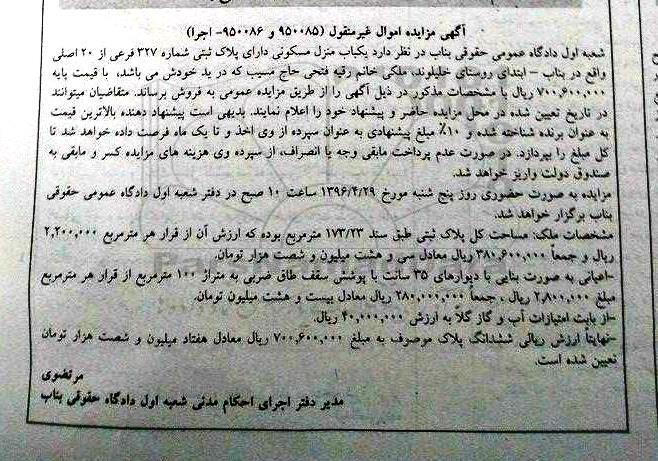 آگهی مزایده اموال غیرمنقول (۹۵۰۰۸۵ و ۹۵۰۰۸۶- اجرا)
شعبه اول دادگاه عمومی حقوقی بناب در نظر دارد یکباب منزل مسکونی دارای پلاک ثبتی شماره ۳۲۷ فرعی از ۲۰ اصلی
واقع در بناب – ابتدای روستای خلیلوند، ملکی خانم رقیه فتحی حاج مسیب که در ید خودش می باشد، با قیمت پایه
۷۰۰,۶۰۰,۰۰۰ ریال با مشخصات مذکور در ذیل آگهی را از طریق مزایده عمومی به فروش برساند. متقاضیان میتوانند
در تاریخ تعیین شده در محل مزایده حاضر و پیشنهاد خود را اعلام نمایند. بدیهی است پیشنهاد دهنده بالاترین قیمت
به عنوان برنده شناخته شده و ۱۰٪ مبلغ پیشنهادی به عنوان سپرده از وی اخذ و تا یک ماه فرصت داده خواهد شد تا
کل مبلغ را بپردازد. در صورت عدم پرداخت مابقی وجه یا انصراف، از سپرده وی هزینه های مزایده کسر و مابقی به
صندوق دولت واریز خواهد شد.
مزایده به صورت حضوری روز پنج شنبه مورخ ۱۳۹۶/۴/۲۹ ساعت ۱۰ صبح در دفتر شعبه اول دادگاه عمومی حقوقی
بناب برگزار خواهد شد.
مشخصات ملک: مساحت کل پلاک ثبتی طبق سند ۱۷۳/۲۳ مترمربع بوده که ارزش آن از قرار هر مترمربع ۲,۲۰۰,۰۰۰
ریال و جمعاً ۳۸۰,۶۰۰,۰۰۰ ریال معادل سی و هشت میلیون و شصت هزار تومان.
-اعیانی به صورت بنایی با دیوارهای ۳۵ سانت با پوشش سقف طاق ضربی به متراژ ۱۰۰ مترمربع از قرار هر مترمربع
مبلغ ۲,۸۰۰,۰۰۰ ریال ، جمعاً ۲۸۰,۰۰۰,۰۰۰ ریال معادل بیست و هشت میلیون تومان.
-از بابت امتیازات آب و گاز کلاً به ارزش ۴۰,۰۰۰,۰۰۰ ریال.
-نهایتاً ارزش ریالی ششدانگ پلاک موصوف به مبلغ ۷۰۰,۶۰۰,۰۰۰ ریال معادل هفتاد میلیون و شصت هزار تومان
تعیین شده است.
مرتضوی
مدیر دفتر اجرای احکام مدنی شعبه اول دادگاه حقوقی بناب